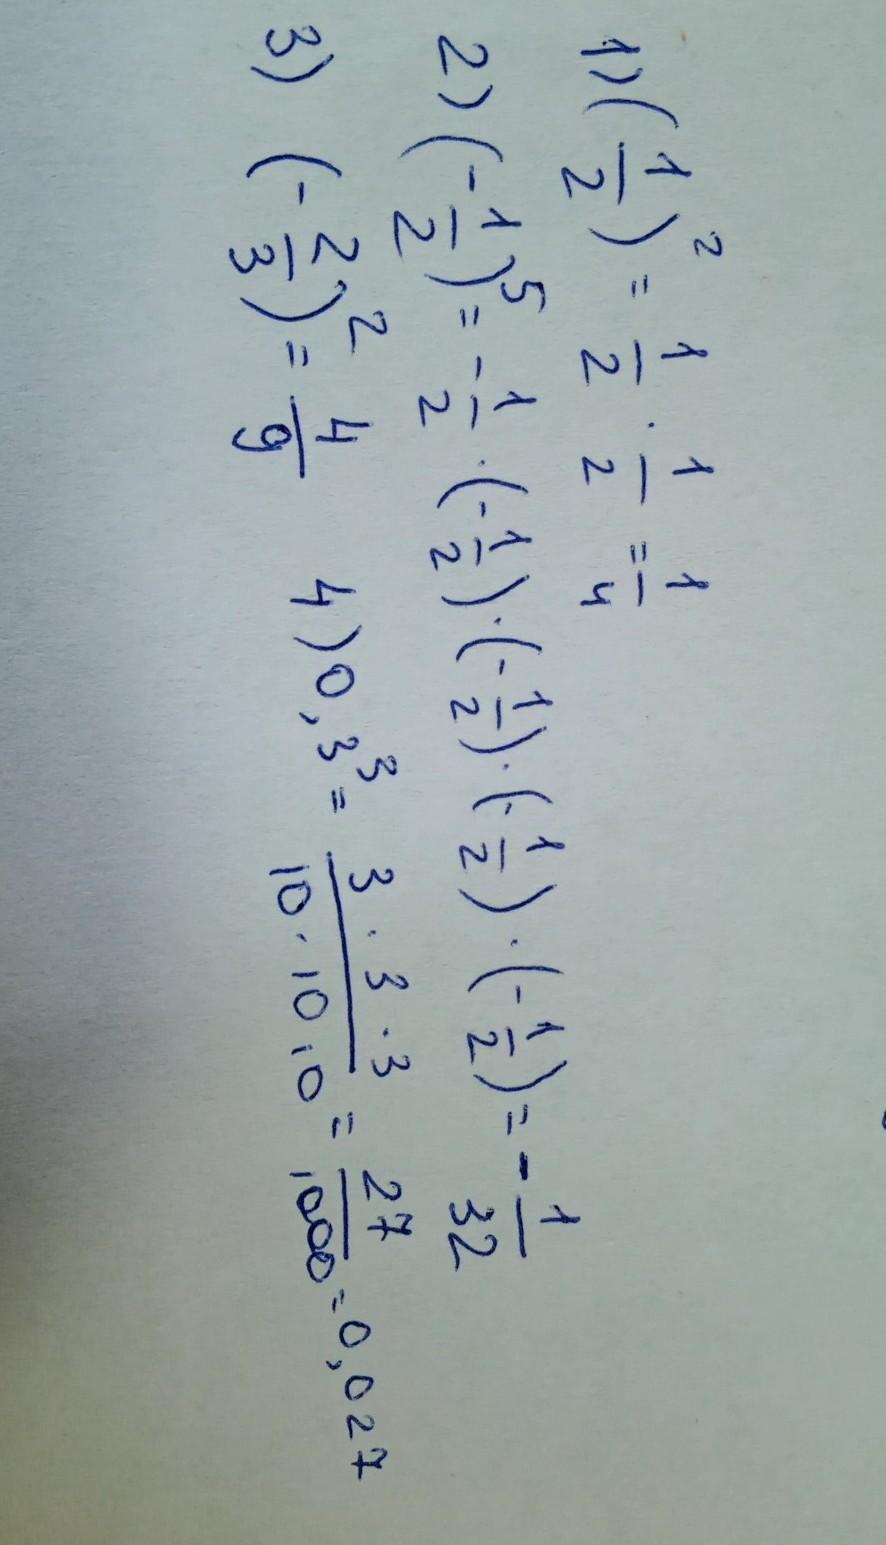 1) (1/2)² = 1/2 · 1/2 = 1/4
2) (-1/2)⁵ = -1/2 · (-1/2) · (-1/2) · (-1/2) · (-1/2) = -1/32
3) (-2/3)² = 4/9 4) 0,3³ = 3·3·3/10·10·10 = 27/1000 = 0,027